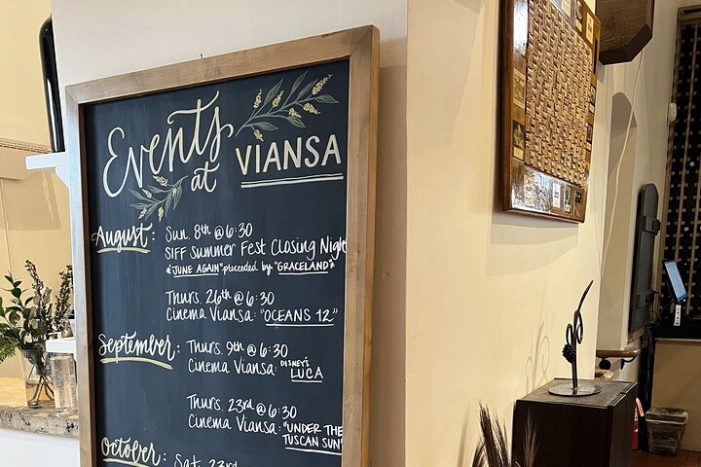 Events
at VIANSA
August: Sun. 8th @ 6:30
SIFF Summer Fest Closing Night
*"JUNE AGAIN" preceeded by "GRACELAND"*
Thurs. 26th @ 6:30
Cinema Viansa: "OCEANS 12"
September: Thurs. 9th @ 6:30
Cinema Viansa: DISNEY'S LUCA
Thurs. 23rd @ 6:30
Cinema Viansa: "UNDER THE
TUSCAN SUN"
October: Sat. 23rd